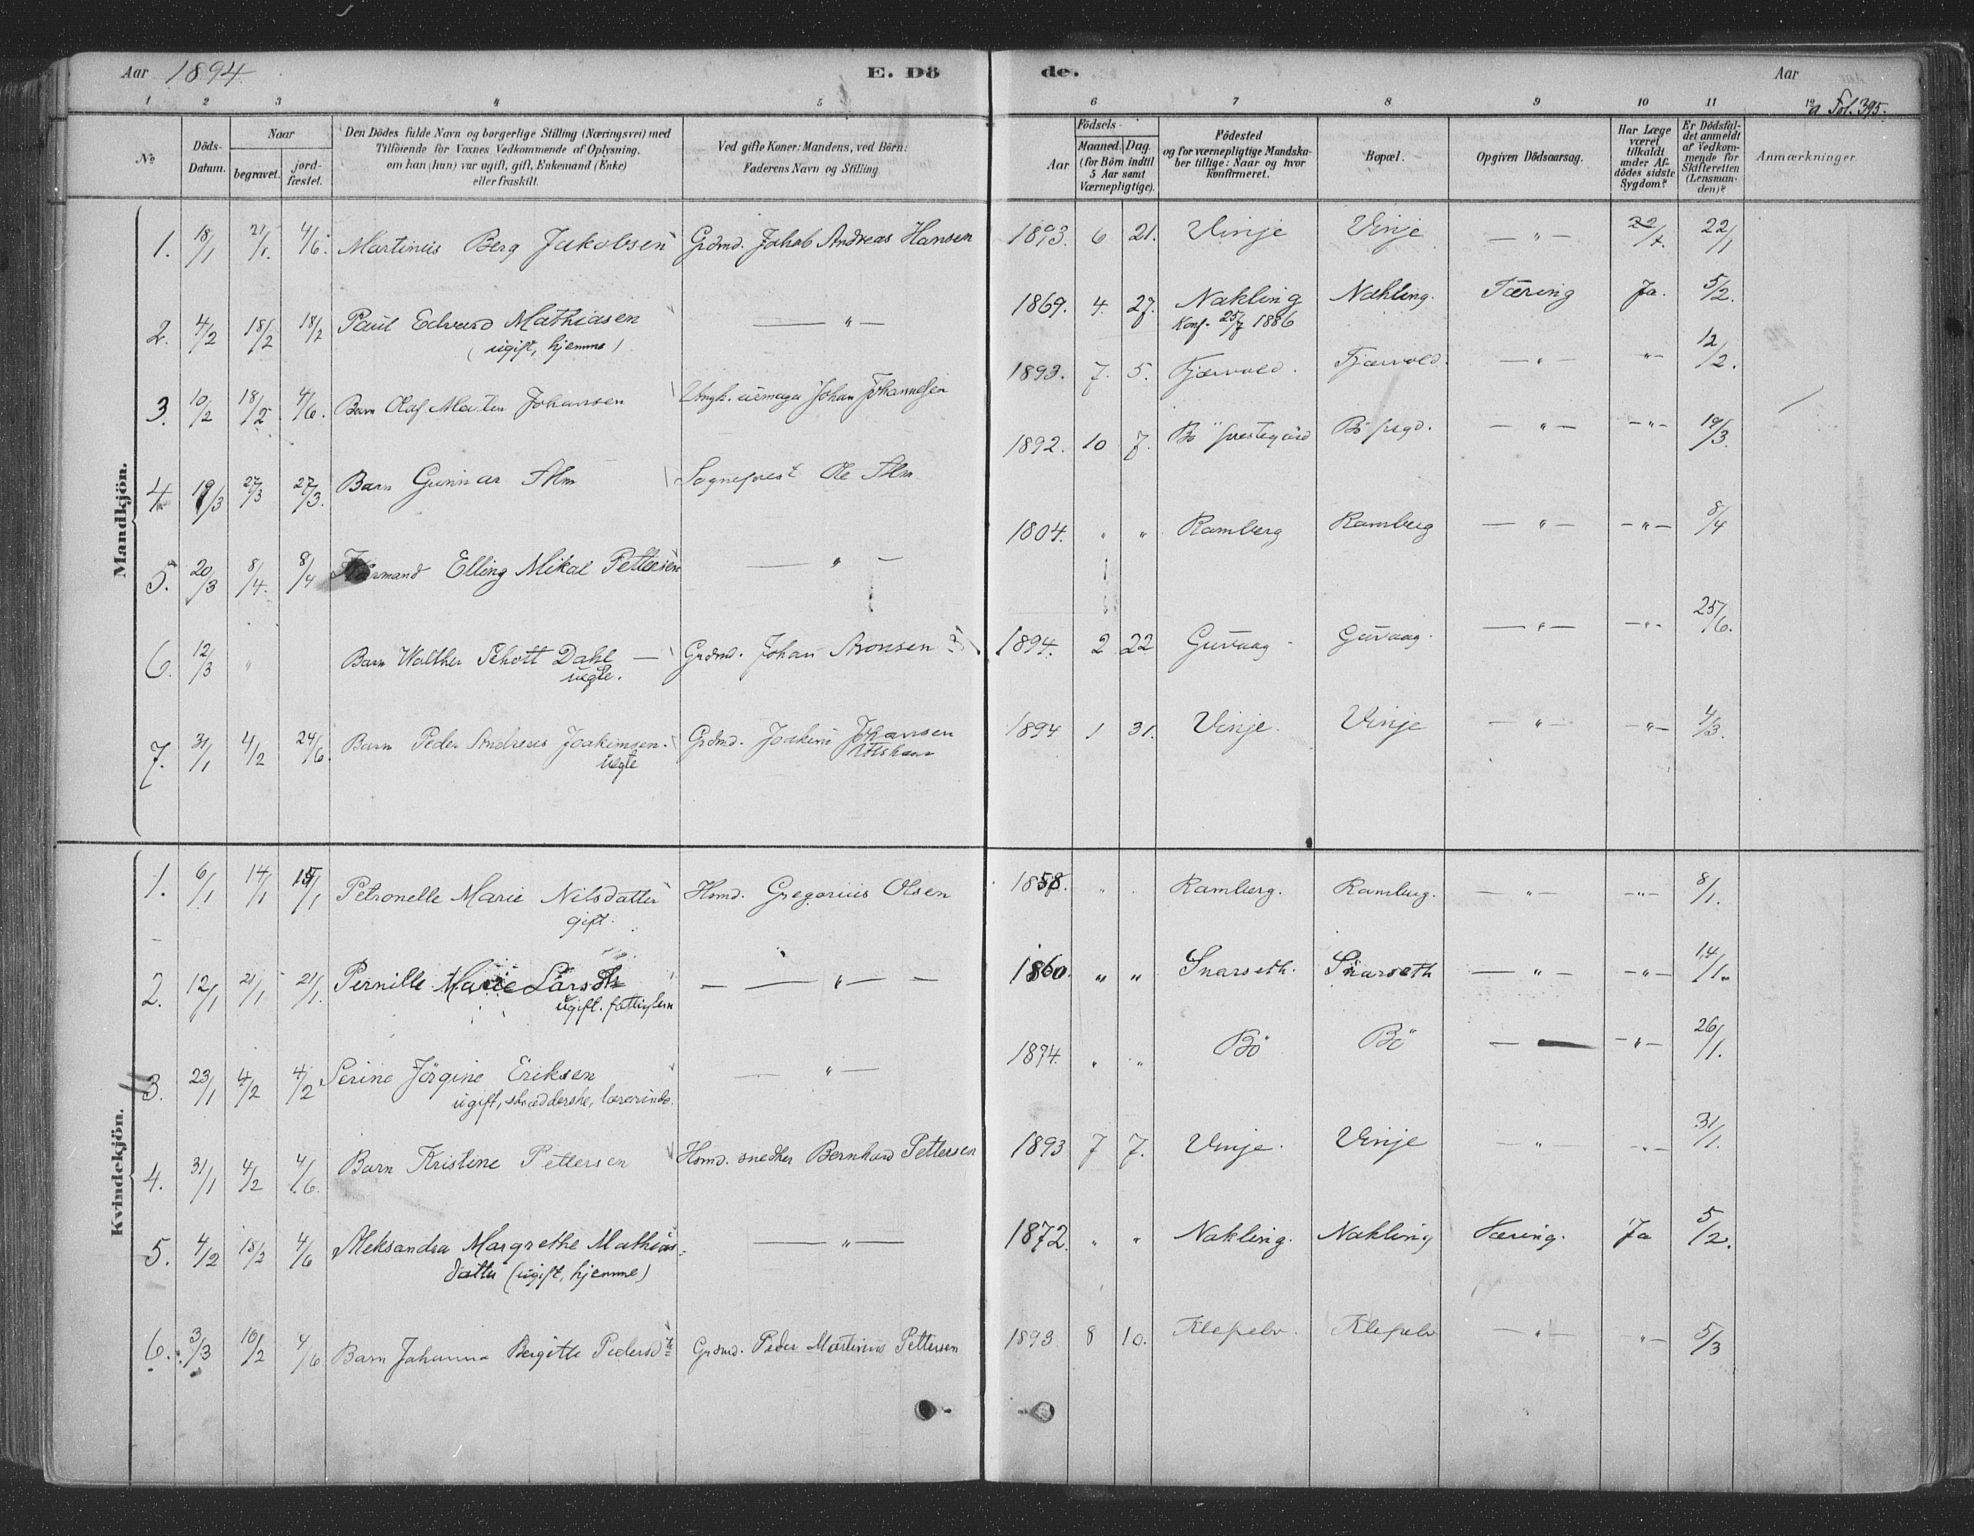 Aar 1894. E. Dö
de. Aar
1 2 3 4 5 6 7 8 9 10 11 12
a Fol. 395.
No
Döds-Datum.
Naar
begravet.
jord-fæstet.
Den Dödes fulde Navn og borgerlige Stilling (Næringsvei) med
Tilföiende for Voxnes Vedkommende af Oplysning,
om han (hun) var ugift, gift, Enkemand (Enke)
eller fraskilt.
Ved gifte Koner: Mandens, ved Börn:
Faderens Navn og Stilling
Födsels-
Aar
Maaned. Dag.
(for Börn indtil
5 Aar samt
Værnepligtige).
Födested
og for værnepligtige Mandska-
ber tillige: Naar og hvor
Konfirmeret.
Bopæl.
Opgiven Dödsaarsag.
Har Læge
været
tilkaldt
under Af-
dödes sidste
Sygdom?
Er Dödsfal-
det anmeldt
af Vedkom-
mende for
Skifteretten
(Lensman-
den)?
Anmærkninger.
Mandkjön.
1. 18/1 21/1. 4/6. Martinus Berg Jakobsen Grdmd. Jakob Andreas Hansen 1893. 6 21. Vinje Vinje — " — 22/1
2. 4/2 18/2 18/2 Paul Edvard Mathiasen — " — 1869. 4. 27. Nakling Nakling. Tæring Ja. 5/2.
(ugift, hjemme) Konf. 25/7 1886
3. 10/2 18/2 4/6. Barn Olaf Martin Johansen Ungk. Johan Johannesen 1893. 7. 5. Fjærvold. Fjærvold. — " — " 12/2.
4. 19/3 27/3 27/3. Barn Gunnar Alm Sogneprest Ole Alm 1892. 10 7. Bö prestegård Bö prgd. — " — — " — 19/3.
5. 20/3 8/4. 8/4 Kårmand Elling Mikal Pettersen — " — 1804. " " Ramberg Ramberg — " — — " — 8/4
6. 12/3 " Barn Walther Schött Dahl — Grdmd. Johan Aronsen 1894. 2 22 Guvaag Guvaag. — " — — " — 25/6.
uegte.
7. 31/1 4/2 24/6. Barn Peder Andreas Joakimsen. Grdmd. Joakim Johansen 1894 1 31. Vinje. Vinje — " — — " — 4/3.
uegte
Kvindekjön.
1. 6/1 14/1 15/1 Petronelle Marie Nilsdatter Hsmd. Gregorius Olsen 1858. " Ramberg. Ramberg. — " — — " — 8/1.
gift.
2. 12/1 21/1 21/1. Pernille Marie Larsdtr — " — — 1860. " " Snarseth. Snarseth — " — — " — 14/1.
ugift. fattiglem
3. 23/1 4/2 4/2 Serine Jörgine Eriksen — " — 1894. " " Bö Bö — — — " — 26/1.
ugift, skrædderske, lærerinde.
4. 31/1 4/2 4/6. Barn Kristine Pettersen Hsmd. snedker Bernhard Pettersen 1893 7 7. Vinje. Vinje — " — — " — 31/1.
5. 4/2 18/2 4/6 Aleksandra Margrethe Mathias- — " — 1872. " " Nakling. Nakling Tæring. Ja 5/2.
datter (ugift, hjemme)
6. 3/3 10/2 4/6 Barn Johanna Bergitte Pedersdtr Grdmd. Peder Martinus Pettersen 1893 8 10. Klepelv. Klepelv — " — " — 5/3